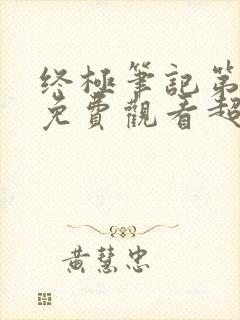 终極筆記第
免費觀看超
黄慧忠